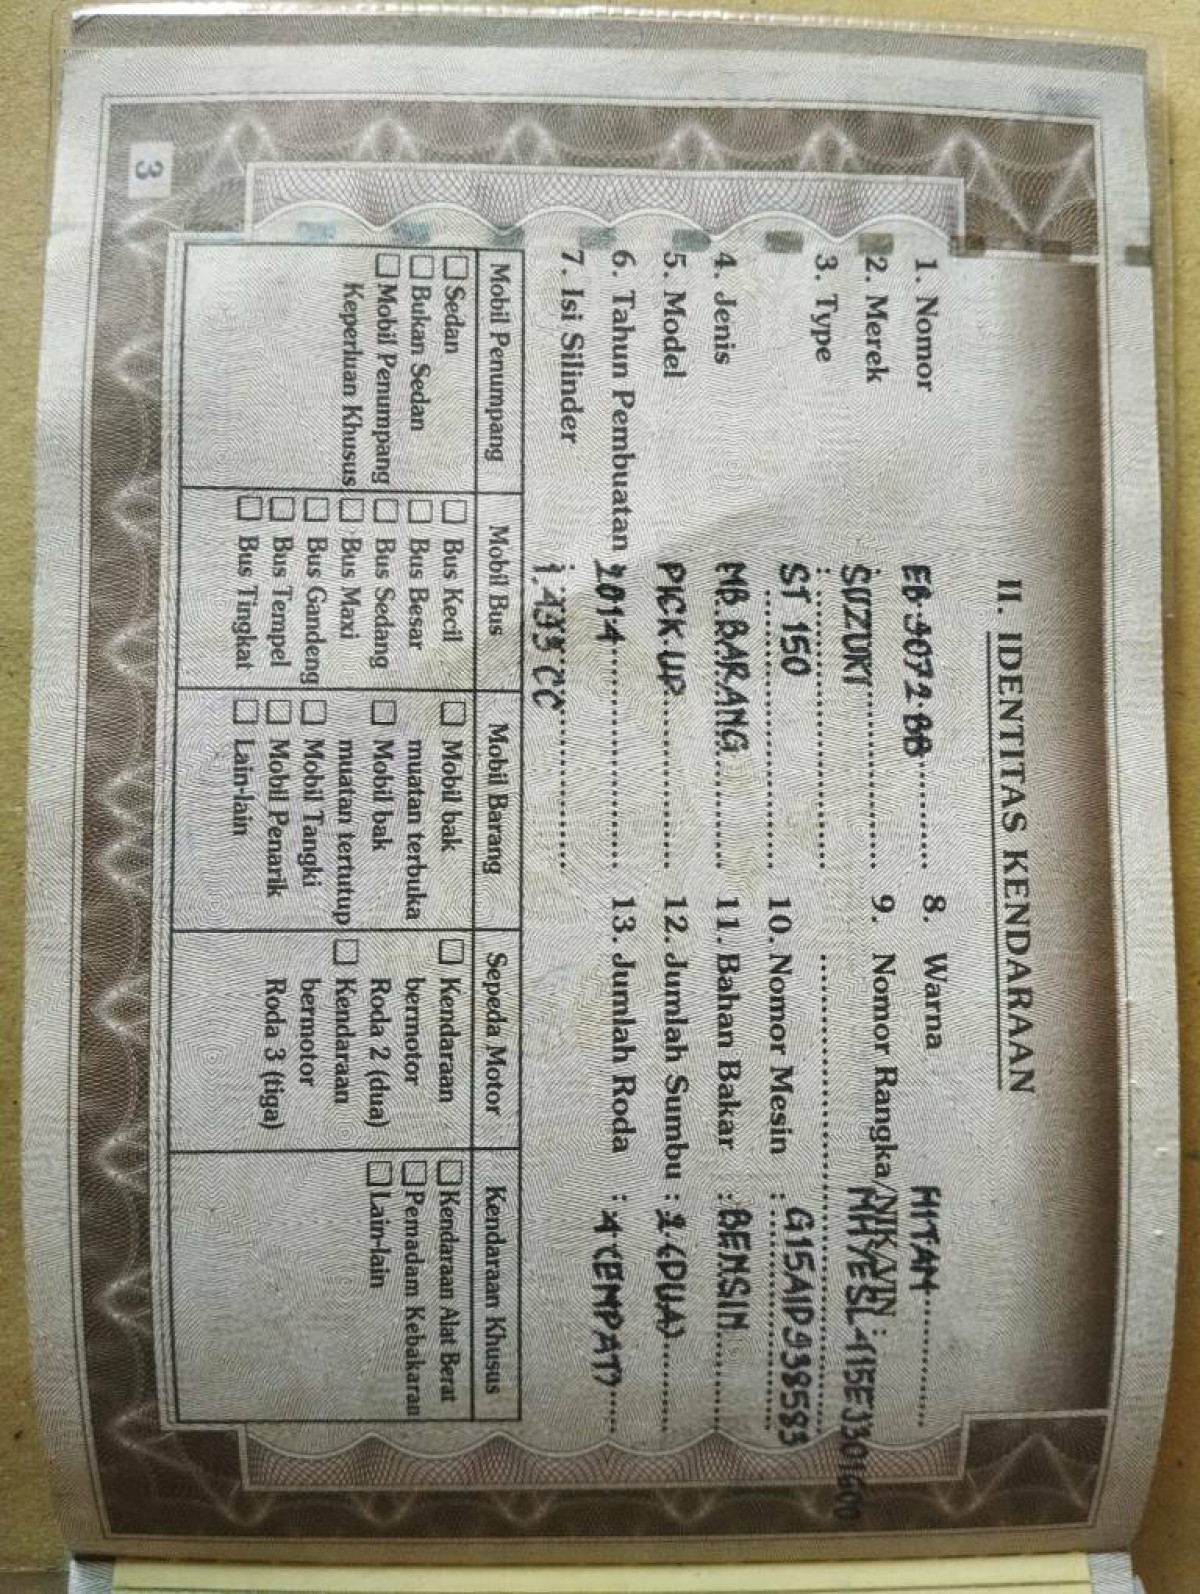 II. IDENTITAS KENDARAAN
1. Nomor EB 9072 BB
2. Merek : SUZUKI
3. Type :
ST 150
4. Jenis : MB. BARANG
5. Model PICK UP
6. Tahun Pembuatan 2014
7. Isi Silinder 1.493 CC
8. Warna HITAM
9. Nomor Rangka/NIK/VIN :
MHYESL415EJ301600
10. Nomor Mesin : G15AID938583
11. Bahan Bakar : BENSIN
12. Jumlah Sumbu : 2 (DUA)
13. Jumlah Roda : 4 (EMPAT)
Mobil Penumpang
☐ Sedan
☐ Bukan Sedan
☐ Mobil Penumpang
Keperluan Khusus
Mobil Bus
☐ Bus Kecil
☐ Bus Besar
☐ Bus Sedang
☐ Bus Maxi
☐ Bus Gandeng
☐ Bus Tempel
☐ Bus Tingkat
Mobil Barang
☐ Mobil bak
muatan terbuka
☐ Mobil bak
muatan tertutup
☐ Mobil Tangki
☐ Mobil Penarik
☐ Lain-lain
Sepeda Motor
☐ Kendaraan
bermotor
Roda 2 (dua)
☐ Kendaraan
bermotor
Roda 3 (tiga)
Kendaraan Khusus
☐ Kendaraan Alat Berat
☐ Pemadam Kebakaran
☐ Lain-lain
3